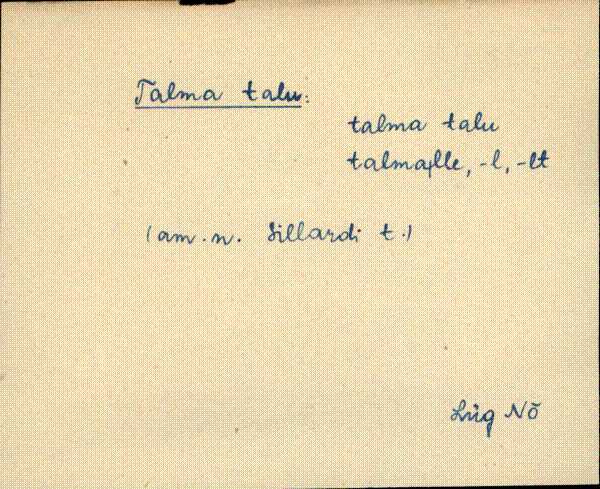 Talma talu:
talma talu
talma|lle, -l, -lt
(am. n. Sillardi t.)
Lüg NÕ